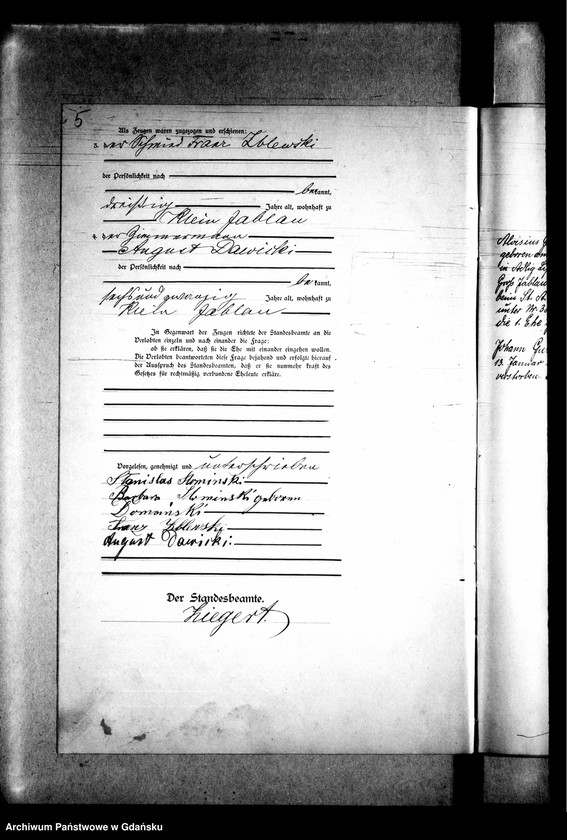 5
Als Zeugen waren zugezogen und erschienen:
3. der Schmied Franz Zblewski
der Persönlichkeit nach
bekannt,
dreißig Jahre alt, wohnhaft zu
Klein Jablau
4. der Zimmermann
August Dawicki
der Persönlichkeit nach
bekannt,
sechsundzwanzig Jahre alt, wohnhaft zu
Klein Jablau
In Gegenwart der Zeugen richtete der Standesbeamte an die
Verlobten einzeln und nach einander die Frage:
ob sie erklären, daß sie die Ehe mit einander eingehen wollen.
Die Verlobten beantworteten diese Frage bejahend und erfolgte hierauf
der Ausspruch des Standesbeamten, daß er sie nunmehr kraft des
Gesetzes für rechtmäßig verbundene Eheleute erkläre.
Vorgelesen, genehmigt und unterschrieben
Stanislas Slominski
Barbara Slominski geboren
Domański
Franz Zblewski
August Dawicki.
Der Standesbeamte.
Ziegert.
Aloisius
geboren am
in Adlig
Groß Jablau
beim St. A
unter Nr.
die 1. Ehe
Johann
13. Januar
verstorben.
Archiwum Państwowe w Gdańsku